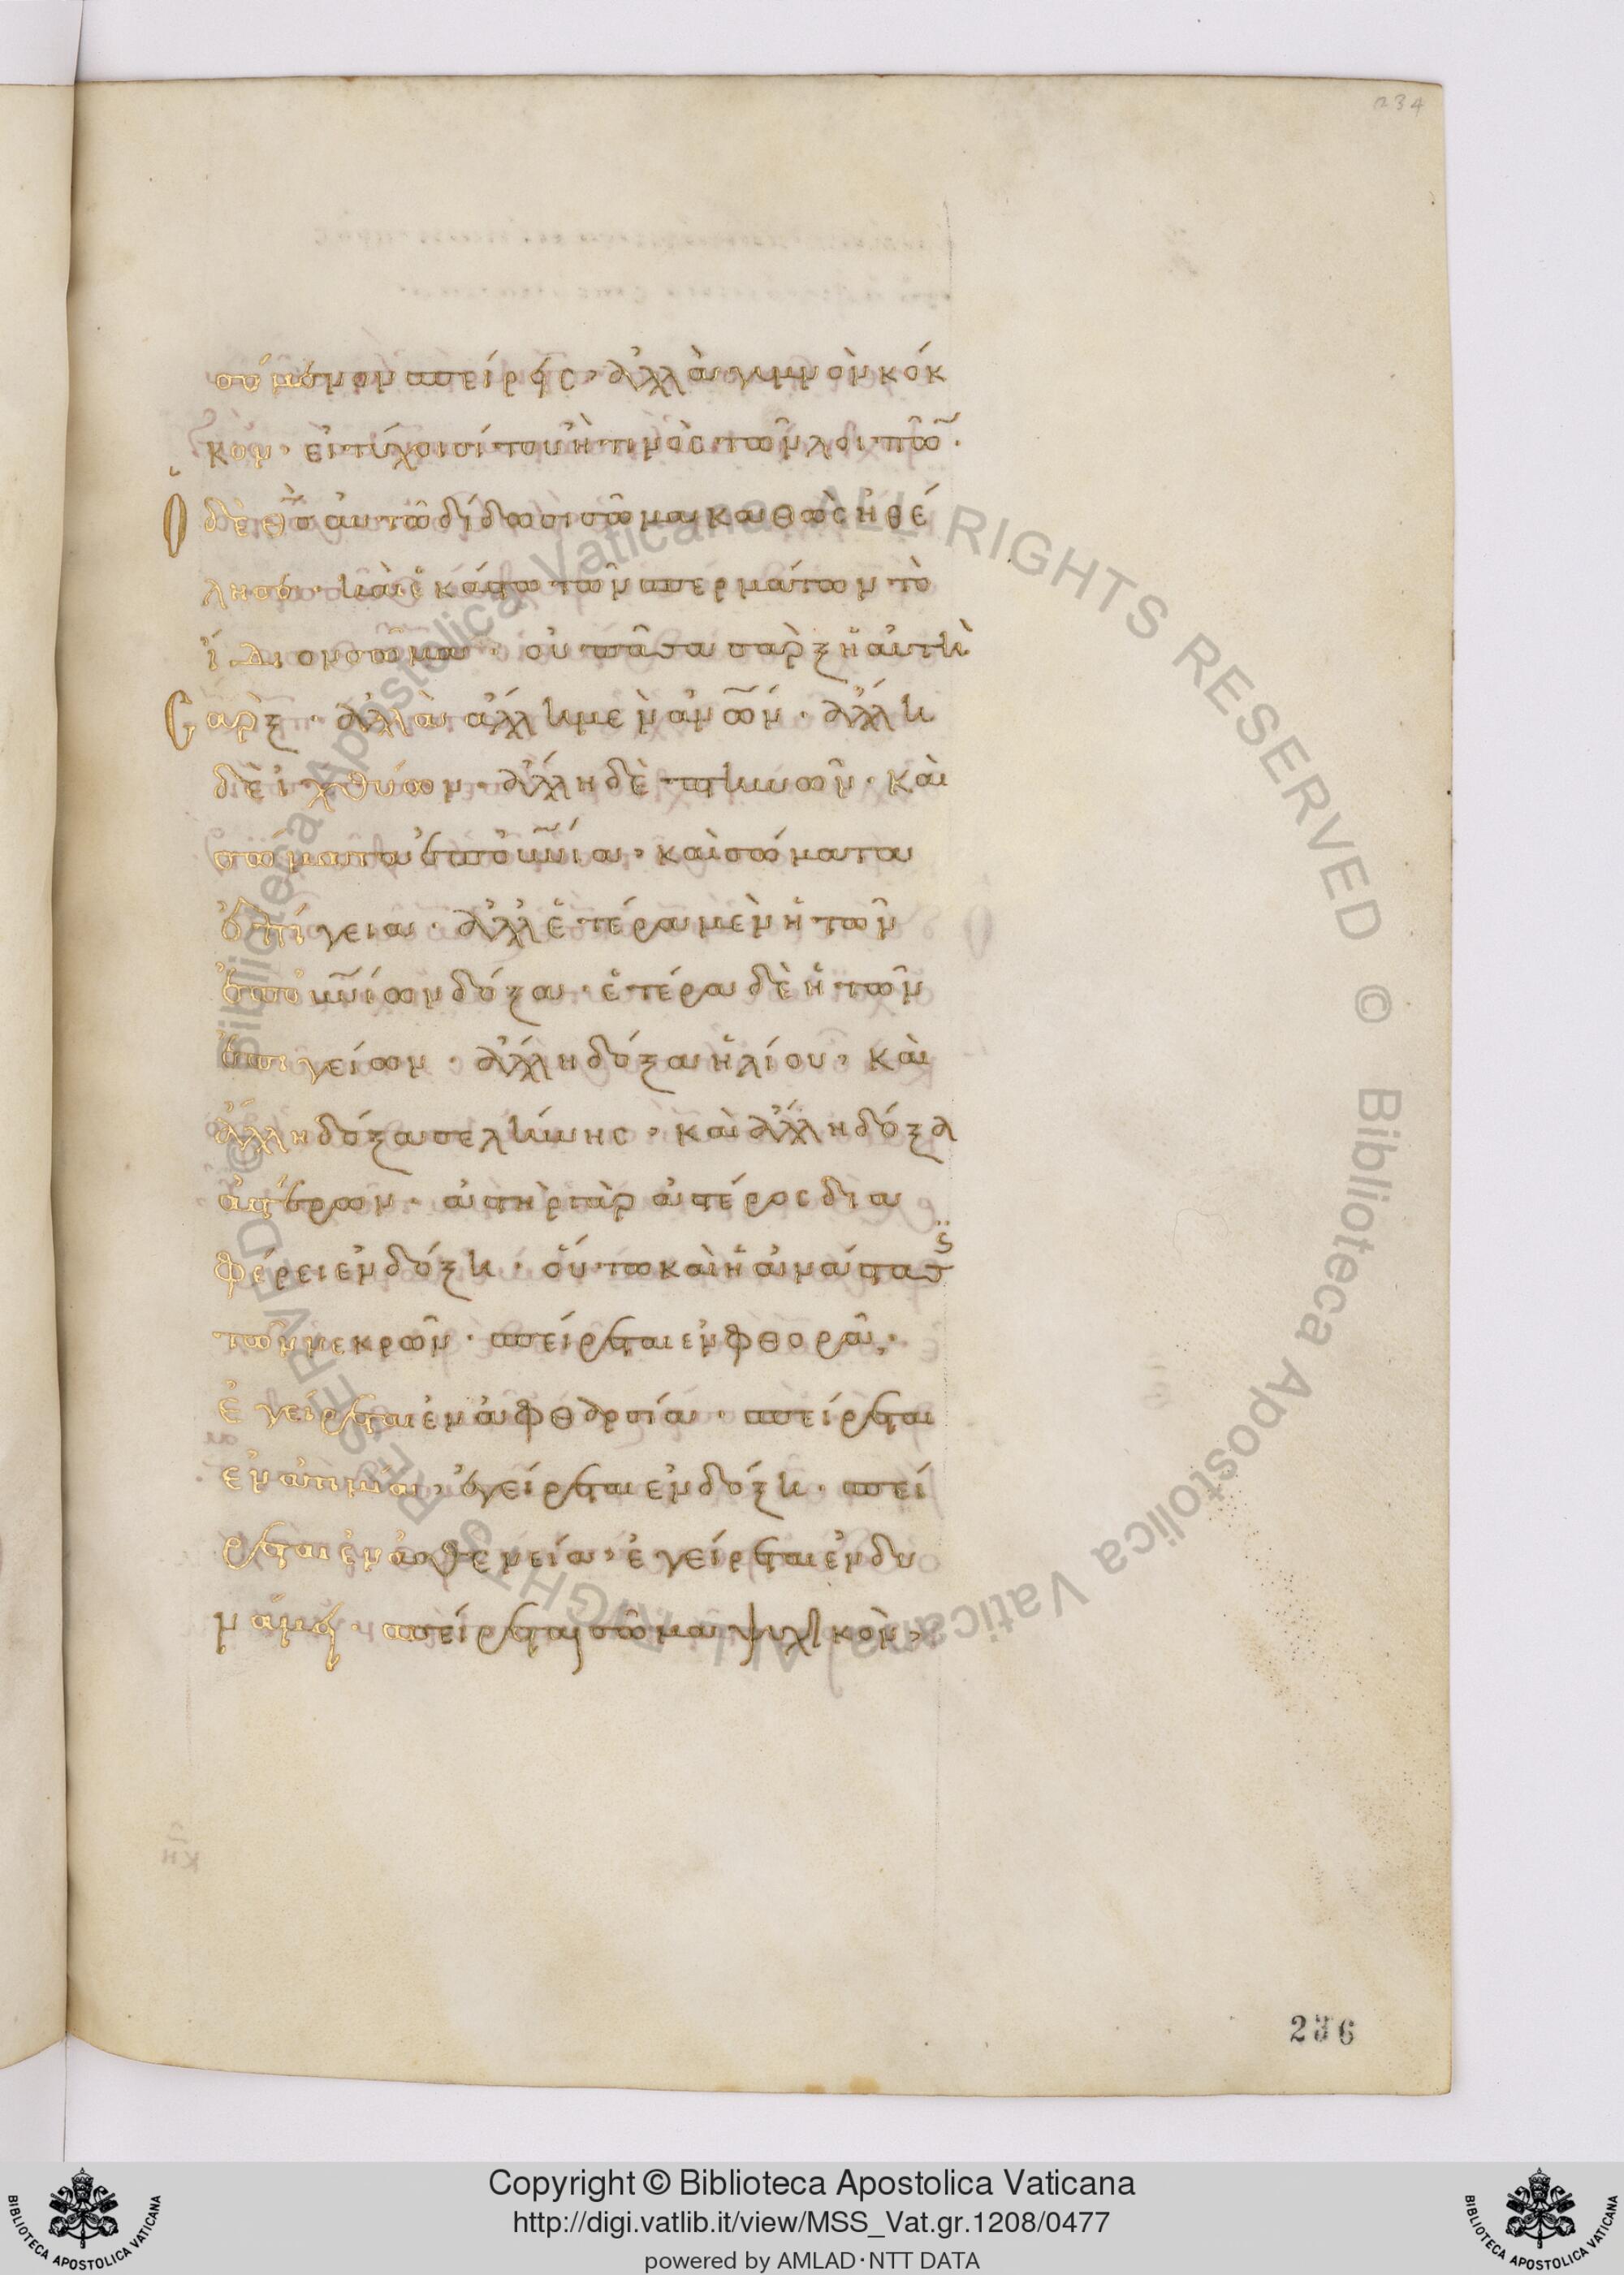 234
σόμενον σπείρεις, ἀλλὰ γυμνὸν κόκ
κον, εἰ τύχοι σίτου ἤ τινος τῶν λοιπῶ̃.
Ὁ δὲ θ̅ς̅ αὐτῶ δίδωσι σῶμα καθὼς ἠθέ
λησε. καὶ ἑκάστω τῶν σπερμάτων τὸ
ἴδιον σῶμα. οὐ πᾶσα σὰρξ ἡ αὐτὴ
Σὰρξ. ἀλλὰ ἄλλη μὲν ἀν̅ω̅ν̅. ἄλλη
δὲ ἰχθύων. ἄλλη δὲ πτηνῶν. καὶ
σώματα ἐπουν̅ία, καὶ σώματα
ἐπίγεια. ἀλλ ἑτέρα μὲν ἡ τῶν
ἐπουν̅ίων δόξα. ἑτέρα δὲ ἡ τῶν
ἐπιγείων. ἄλλη δόξα ἡλίου, καὶ
ἄλλη δόξα σελήνης, καὶ ἄλλη δόξα
ἀστέρων. ἀστὴρ γὰρ ἀστέρος δια
φέρει ἐν δόξη. οὕτω καὶ ἡ ἀνάστασϊς
τῶν νεκρῶν. σπείρεται ἐν φθορᾶ,
ἐγείρεται ἐν ἀφθαρσία. σπείρεται
ἐν ἀτιμία, ἐγείρεται ἐν δόξη. σπεί
ρεται ἐν ἀσθενεία, ἐγείρεται ἐν δυ
νάμει. σπείρεται σῶμα ψυχικὸν,
236
© Biblioteca Apostolica Vaticana ALL RIGHTS RESERVED © Biblioteca Apostolica Vaticana ALL RIGHTS RESERVED
Copyright © Biblioteca Apostolica Vaticana
http://digi.vatlib.it/view/MSS_Vat.gr.1208/0477
powered by AMLAD·NTT DATA
BIBLIOTECA APOSTOLICA VATICANA
BIBLIOTECA APOSTOLICA VATICANA